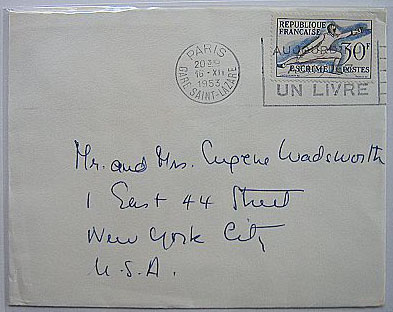 REPUBLIQUE
FRANÇAISE
50F
ESCRIME POSTES
PARIS
GARE SAINT-LAZARE
16 - XII
1953
UN LIVRE
Mr. and Mrs. Eugene Wadsworth
1 East 44 Street
New York City
U.S.A.